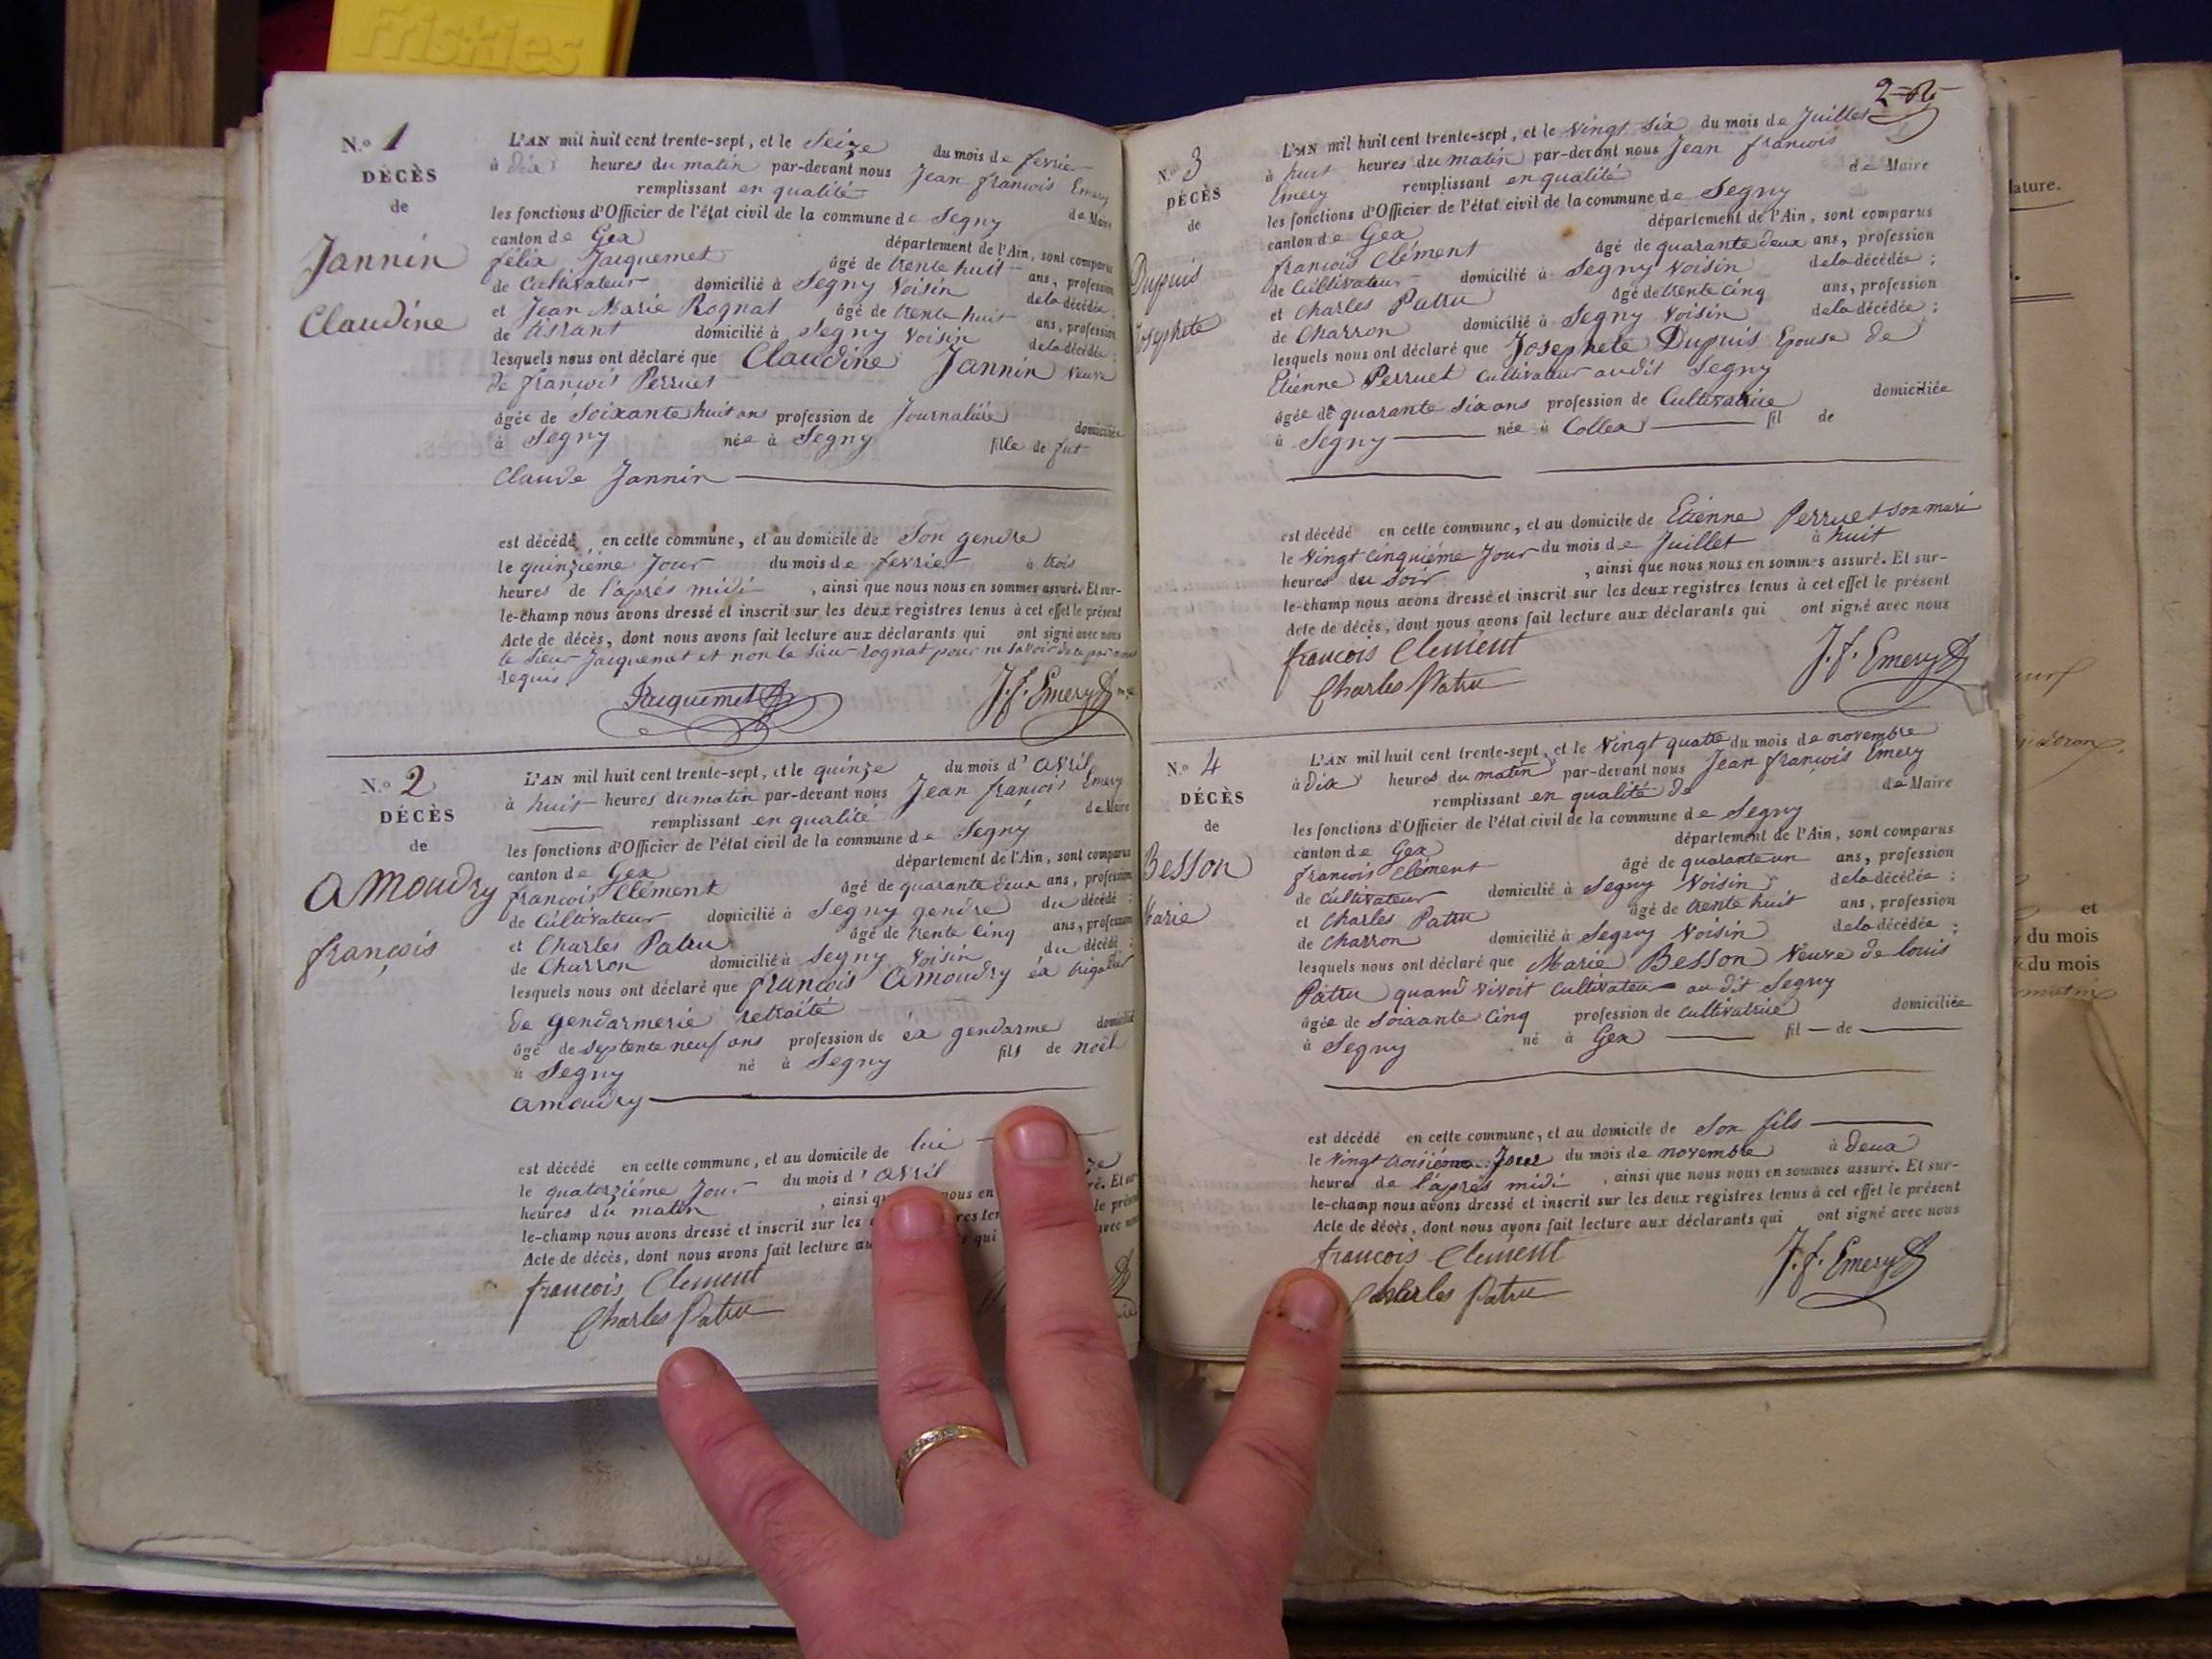 Friskies
N.o 1
DÉCÈS
de
Jannin
Claudine
L'AN mil huit cent trente-sept, et le Seize du mois de fevrie
à dix heures du matin par-devant nous Jean francois Emery
remplissant en qualité de Maire
les fonctions d'Officier de l'état civil de la commune de Segny
canton de Gex département de l'Ain, sont comparus
félix Jacquemet âgé de trente huit ans, profession
de Cultivateur domicilié à Segny Voisin de la décédée;
et Jean Marie Rognat âgé de trente huit ans, profession
de domicilié à Segny Voisin de la décédée;
lesquels nous ont déclaré que Claudine Jannin Veuve
de françois Perruet
âgée de Soixante huit ans profession de Journalière domiciliée
à Segny née à Segny fille de fut
Claude Jannin
est décédé en cette commune, et au domicile de Son gendre
le quinzième Jour du mois de fevrier à trois
heures de l'après midi, ainsi que nous nous en sommes assuré. Et sur-
le-champ nous avons dressé et inscrit sur les deux registres tenus à cet effet le présent
Acte de décès, dont nous avons fait lecture aux déclarants qui ont signé avec nous
le Sieur Jacquemet et non le Sieur rognat pour ne savoir de ce par nous
requis.
Jacquemet J. f. Emery
N.o 2
DÉCÈS
de
Amoudry
françois
L'AN mil huit cent trente-sept, et le quinze du mois d'avril
à huit heures du matin par-devant nous Jean françois Emery
remplissant en qualité de Maire
les fonctions d'Officier de l'état civil de la commune de Segny
canton de Gex département de l'Ain, sont comparus
françois Clément âgé de quarante deux ans, profession
de Cultivateur domicilié à Segny gendre du décédé;
et Charles Patru âgé de trente cinq ans, profession
de Charron domicilié à Segny Voisin du décédé;
lesquels nous ont déclaré que françois Amoudry ex brigadier
de gendarmerie retraité
âgé de septente neuf ans profession de ex gendarme domicilié
à Segny né à Segny fils de noël
amoudry
est décédé en cette commune, et au domicile de lui
le quatorzième Jour du mois d'avril
heures du matin, ainsi nous en Et sur
le-champ nous avons dressé et inscrit sur les le présent
Acte de décès, dont nous avons fait lecture au qui avec nous
francois Clement
Charles Patru
2
N.o 3
DÉCÈS
de
Dupuis
Josephete
L'AN mil huit cent trente-sept, et le Vingt Six du mois de Juillet
à huit heures du matin par-devant nous Jean francois
Emery remplissant en qualité de Maire
les fonctions d'Officier de l'état civil de la commune de Segny
canton de Gex département de l'Ain, sont comparus
francois Clément âgé de quarante deux ans, profession
de Cultivateur domicilié à Segny Voisin de la décédée;
et Charles Patru âgé de trente cinq ans, profession
de Charron domicilié à Segny Voisin de la décédée;
lesquels nous ont déclaré que Josephete Dupuis Epouse de
Etienne Perruet cultivateur audit Segny
âgée de quarante six ans profession de Cultivatrice domiciliée
à Segny née à Collex fil de
est décédé en cette commune, et au domicile de Etienne Perruet son mari
le Vingt cinquième Jour du mois de Juillet à huit
heures du Soir, ainsi que nous nous en sommes assuré. Et sur-
le-champ nous avons dressé et inscrit sur les deux registres tenus à cet effet le présent
Acte de décès, dont nous avons fait lecture aux déclarants qui ont signé avec nous
francois Clement J. f. Emery
Charles Patru
N.o 4
DÉCÈS
de
Besson
Marie
L'AN mil huit cent trente-sept, et le Vingt quatre du mois de novembre
à dix heures du matin par-devant nous Jean françois Emery
remplissant en qualité de de Maire
les fonctions d'Officier de l'état civil de la commune de Segny
canton de Gex département de l'Ain, sont comparus
francois Clément âgé de quarante un ans, profession
de Cultivateur domicilié à Segny Voisin de la décédée;
et Charles Patru âgé de trente huit ans, profession
de Charron domicilié à Segny Voisin de la décédée;
lesquels nous ont déclaré que Marie Besson Veuve de louis
Patru quand vivoit Cultivateur au dit Segny
âgée de Soixante Cinq profession de Cultivatrice domiciliée
à Segny né à Gex fil de
est décédé en cette commune, et au domicile de Son fils
le Vingt troisième Jour du mois de novembre à deux
heures de l'après midi, ainsi que nous nous en sommes assuré. Et sur-
le-champ nous avons dressé et inscrit sur les deux registres tenus à cet effet le présent
Acte de décès, dont nous avons fait lecture aux déclarants qui ont signé avec nous
francois Clement J. f. Emery
Charles Patru
lature.
et
du mois
du mois
matin